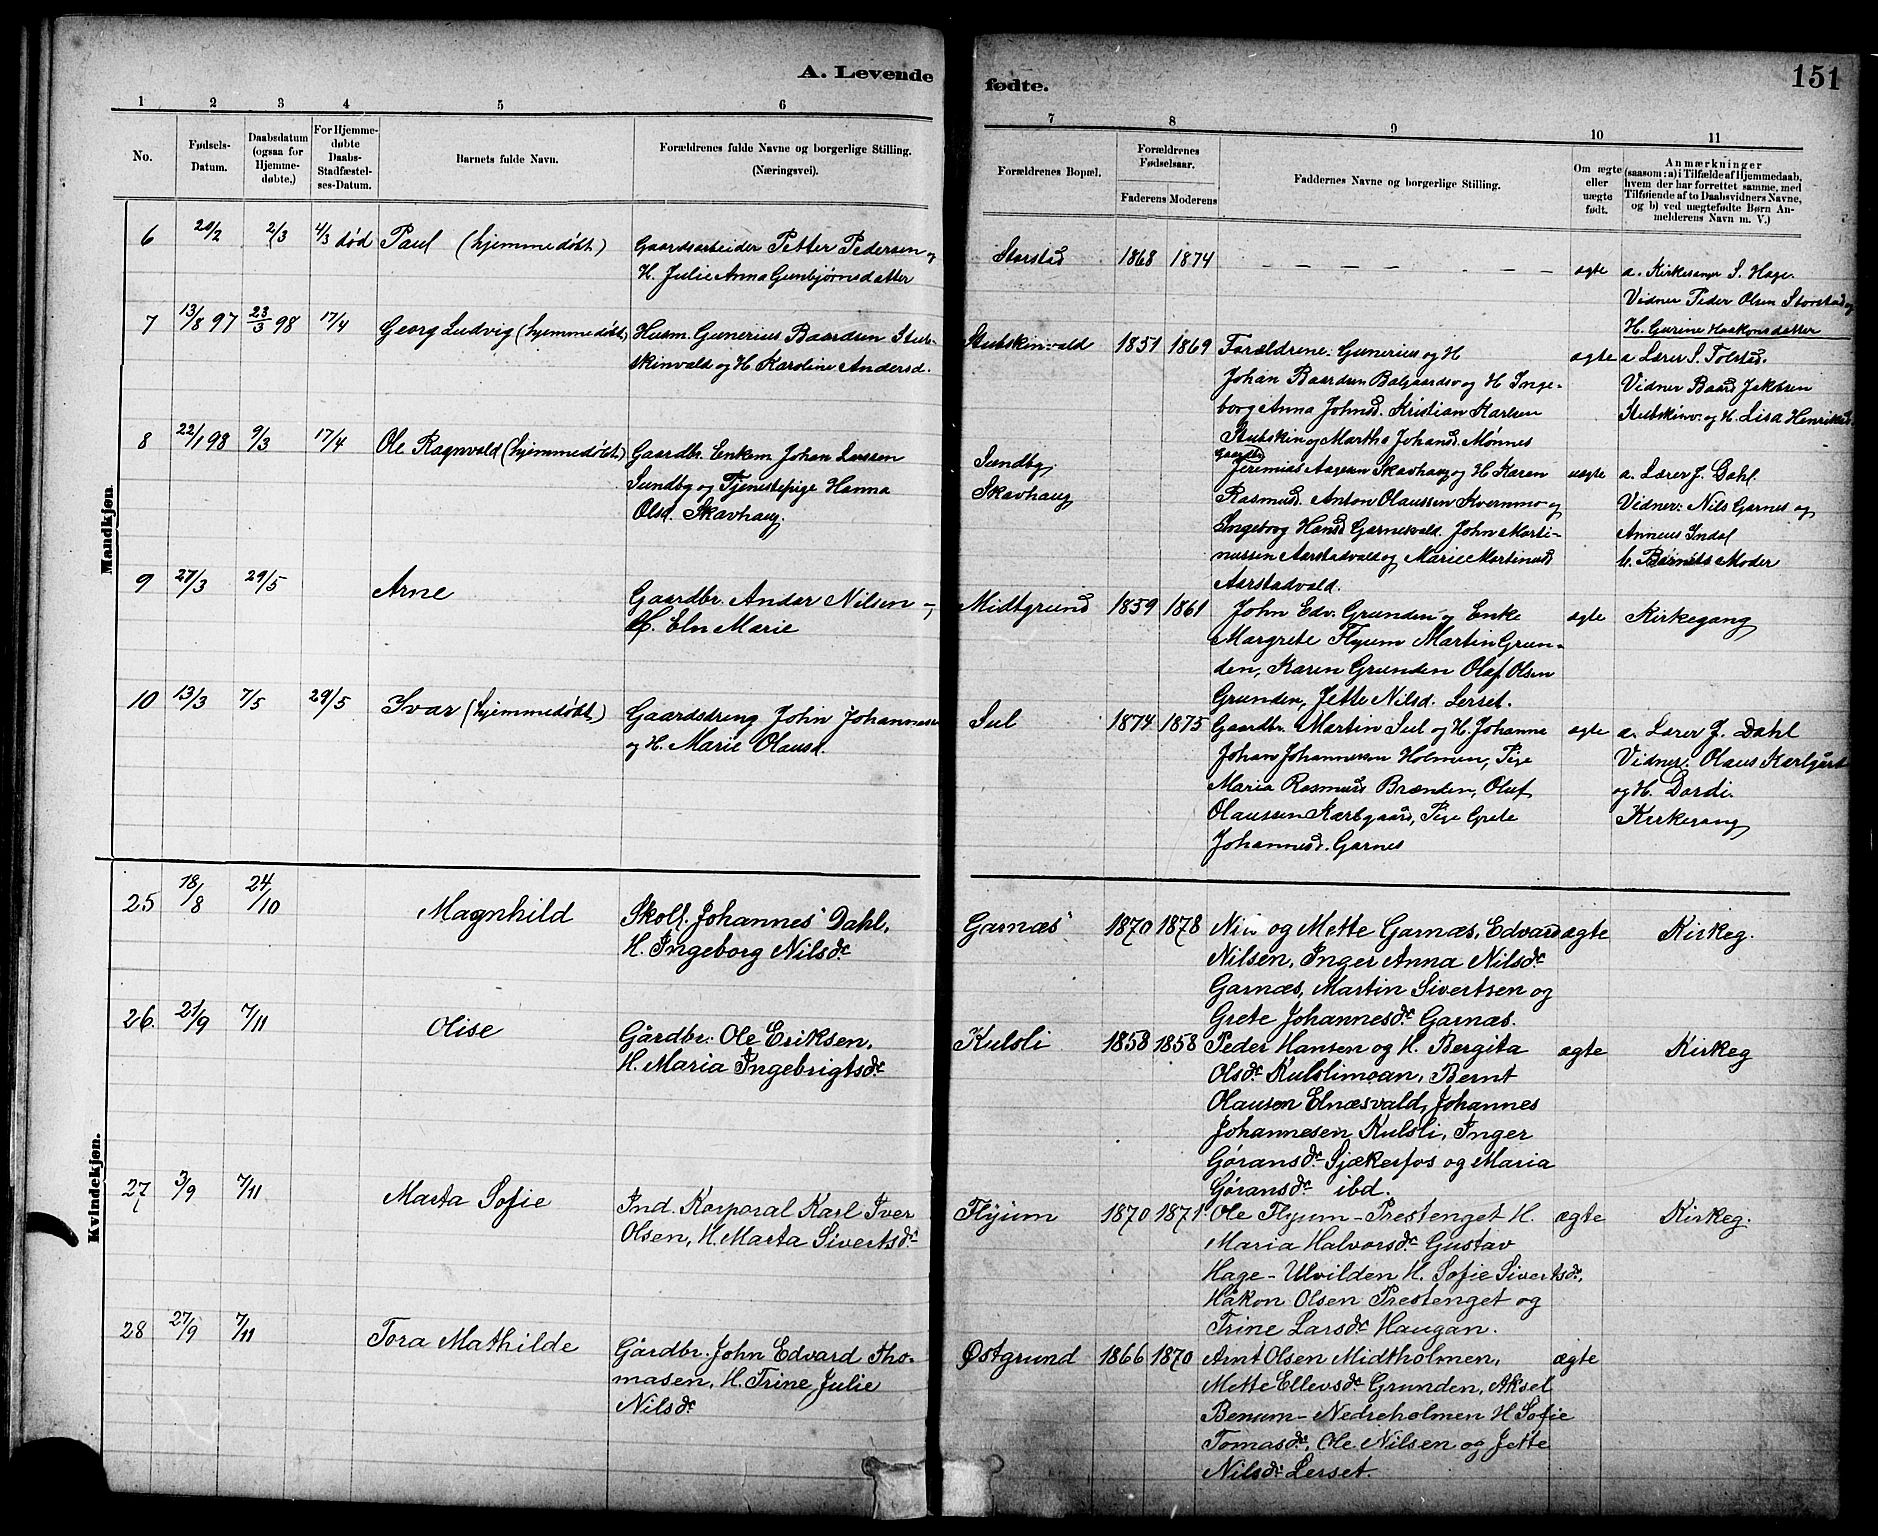 A. Levende
fødte.
151
1 2 3 4 5 6
7 8 9 10 11
No.
Fødsels-
Datum.
Daabsdatum
(ogsaa for
Hjemme-
døbte,)
For Hjemme-
døbte
Daabs-
Stadfæstel-
ses-Datum.
Barnets fulde Navn.
Forældrenes fulde Navne og borgerlige Stilling.
(Næringsvei).
Forældrenes Bopæl.
Forældrenes
Fødselsaar.
Faderens Moderens
Faddernes Navne og borgerlige Stilling.
Om ægte
eller
uægte
født.
Anmærkninger
(saasom: a) i Tilfælde af Hjemmedaab,
hvem der har forrettet samme, med
Tilføiende af to Daabsvidners Navne,
og b) ved uægtefødte Børn An-
melderens Navn m. V.)
Mandkjøn.
6 20/2 2/3 4/3 død Paul (hjemmedøbt)
Gaardsarbeider Petter Pedersen og
H. Julie Anna Gunbjørnsdatter
Storstad 1868 1874 — — — — — — — — ægte
a. Kirkesanger S. Hage.
Vidner Peder Olsen Storstad og
H. Gurine Haakonsdatter
7 13/8 97 23/3 98 17/4 Georg Ludvig (hjemmedøbt)
Husm. Gunerius Baardsen Stub-
skinvald og H. Karoline Andersd.
Stubskinvald 1851 1869
Forældrene: Gunerius og H
Johan Baardsen Balgaardsv og H. Inge-
borg Anna Johnsd. Kristian Karlsen
Stubskin og Martha Johansd. Mønnes
ægte
a Lærer S. Tolstad.
Vidner Baard Jakobsen
Stubskinv. og H. Lisa Henriksd.
8 22/1 98 9/3 17/4 Ole Ragnvald (hjemmedøbt)
Gaardbr. Enkem. Johan Larssen
Sundby og Tjenestepige Hanna
Olsd. Skavhaug.
Sundby
Skavhaug
Gaardbr
Jeremias Aagesen Skavhaug og H. Karen
Rasmusd. Anton Olaussen Kvernmo og
Ingeborg Hansd Garnesvald. John Marti-
nussen Aarstadvald og Marie Martinusd
Aarstadvald.
uægte
a. Lærer J. Dahl.
Vidner: Nils Garnes og
Anneus Indal
b. Barnets Moder
9 27/3 29/5 Arne
Gaardbr. Andor Nilsen –
H. Eln Marie
Midtgrund 1859 1861
John Edv. Grunden og Enke
Margrete Flyum Martin Grun-
den, Karen Grunden Olaf Olsen
Grunden, Jette Nilsd. Lerset.
ægte Kirkegang
10 13/3 7/5 29/5 Ivar (hjemmedøbt)
Gaardsdreng John Johannessen
og H. Marie Olausd.
Sul 1874 1875
Gaardbr. Martin Sul og H. Johanna
Johan Johannessen Holmen, Pige
Maria Rasmusd Brænden, Oluf
Olaussen Karlgaard, Pige Grete
Johannesd. Garnes
ægte
a. Lærer J. Dahl
Vidner: Olaus Karlgård
og H. Dordi.
Kirkegang
Kvindekjøn.
25 18/8 24/10 Magnhild
Skoll. Johannes Dahl,
H. Ingeborg Nilsdr.
Garnæs 1870 1878
og Mette Garnæs, Edvard
Nilsen, Inger Anna Nilsdr.
Garnæs, Martin Sivertsen og
Grete Johannesdr. Garnæs.
ægte Kirkeg.
26. 21/9 7/11 Olise
Gårdbr. Ole Eriksen,
H. Maria Ingebrigtsdr.
Kulsli 1858 1858
Peder Hansen og H. Bergita
Olsdr. Kulslimoan, Bernt
Olausen Elnæsvald, Johannes
Johannesen Kulsli, Inger
Göransdr. Sjækerfos og Maria
Göransdr. ibd.
ægte Kirkeg
27 3/9 7/11 Marta Sofie
Ind. Korporal Karl Iver
Olsen, H. Marta Sivertsdr.
Flyum 1870 1871
Ole Flyum – Prestenget H.
Maria Halvorsdr. Gustav
Hage – Ulvilden H. Sofie Sivertsdr,
Håkon Olsen Prestenget og
Trine Larsdr. Haugan.
ægte Kirkeg.
28 27/9 7/11 Tora Mathilde
Gårdbr. John Edvard Tho-
masen, H. Trine Julie
Nilsdr.
Østgrund 1866 1870
Arnt Olsen Midtholmen,
Mette Ellevsdr. Grunden, Aksel
Benum – Nedreholmen H Sofie
Tomasdr., Ole Nilsen og Jette
Nilsdr. Lerset.
ægte